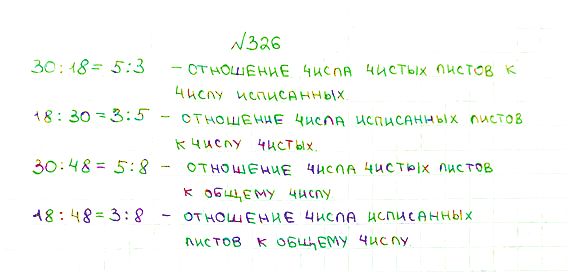 №326
30:18 = 5:3 – ОТНОШЕНИЕ ЧИСЛА ЧИСТЫХ ЛИСТОВ К
ЧИСЛУ ИСПИСАННЫХ.
18:30 = 3:5 – ОТНОШЕНИЕ ЧИСЛА ИСПИСАННЫХ ЛИСТОВ
К ЧИСЛУ ЧИСТЫХ.
30:48 = 5:8 – ОТНОШЕНИЕ ЧИСЛА ЧИСТЫХ ЛИСТОВ
К ОБЩЕМУ ЧИСЛУ
18:48 = 3:8 – ОТНОШЕНИЕ ЧИСЛА ИСПИСАННЫХ
ЛИСТОВ К ОБЩЕМУ ЧИСЛУ